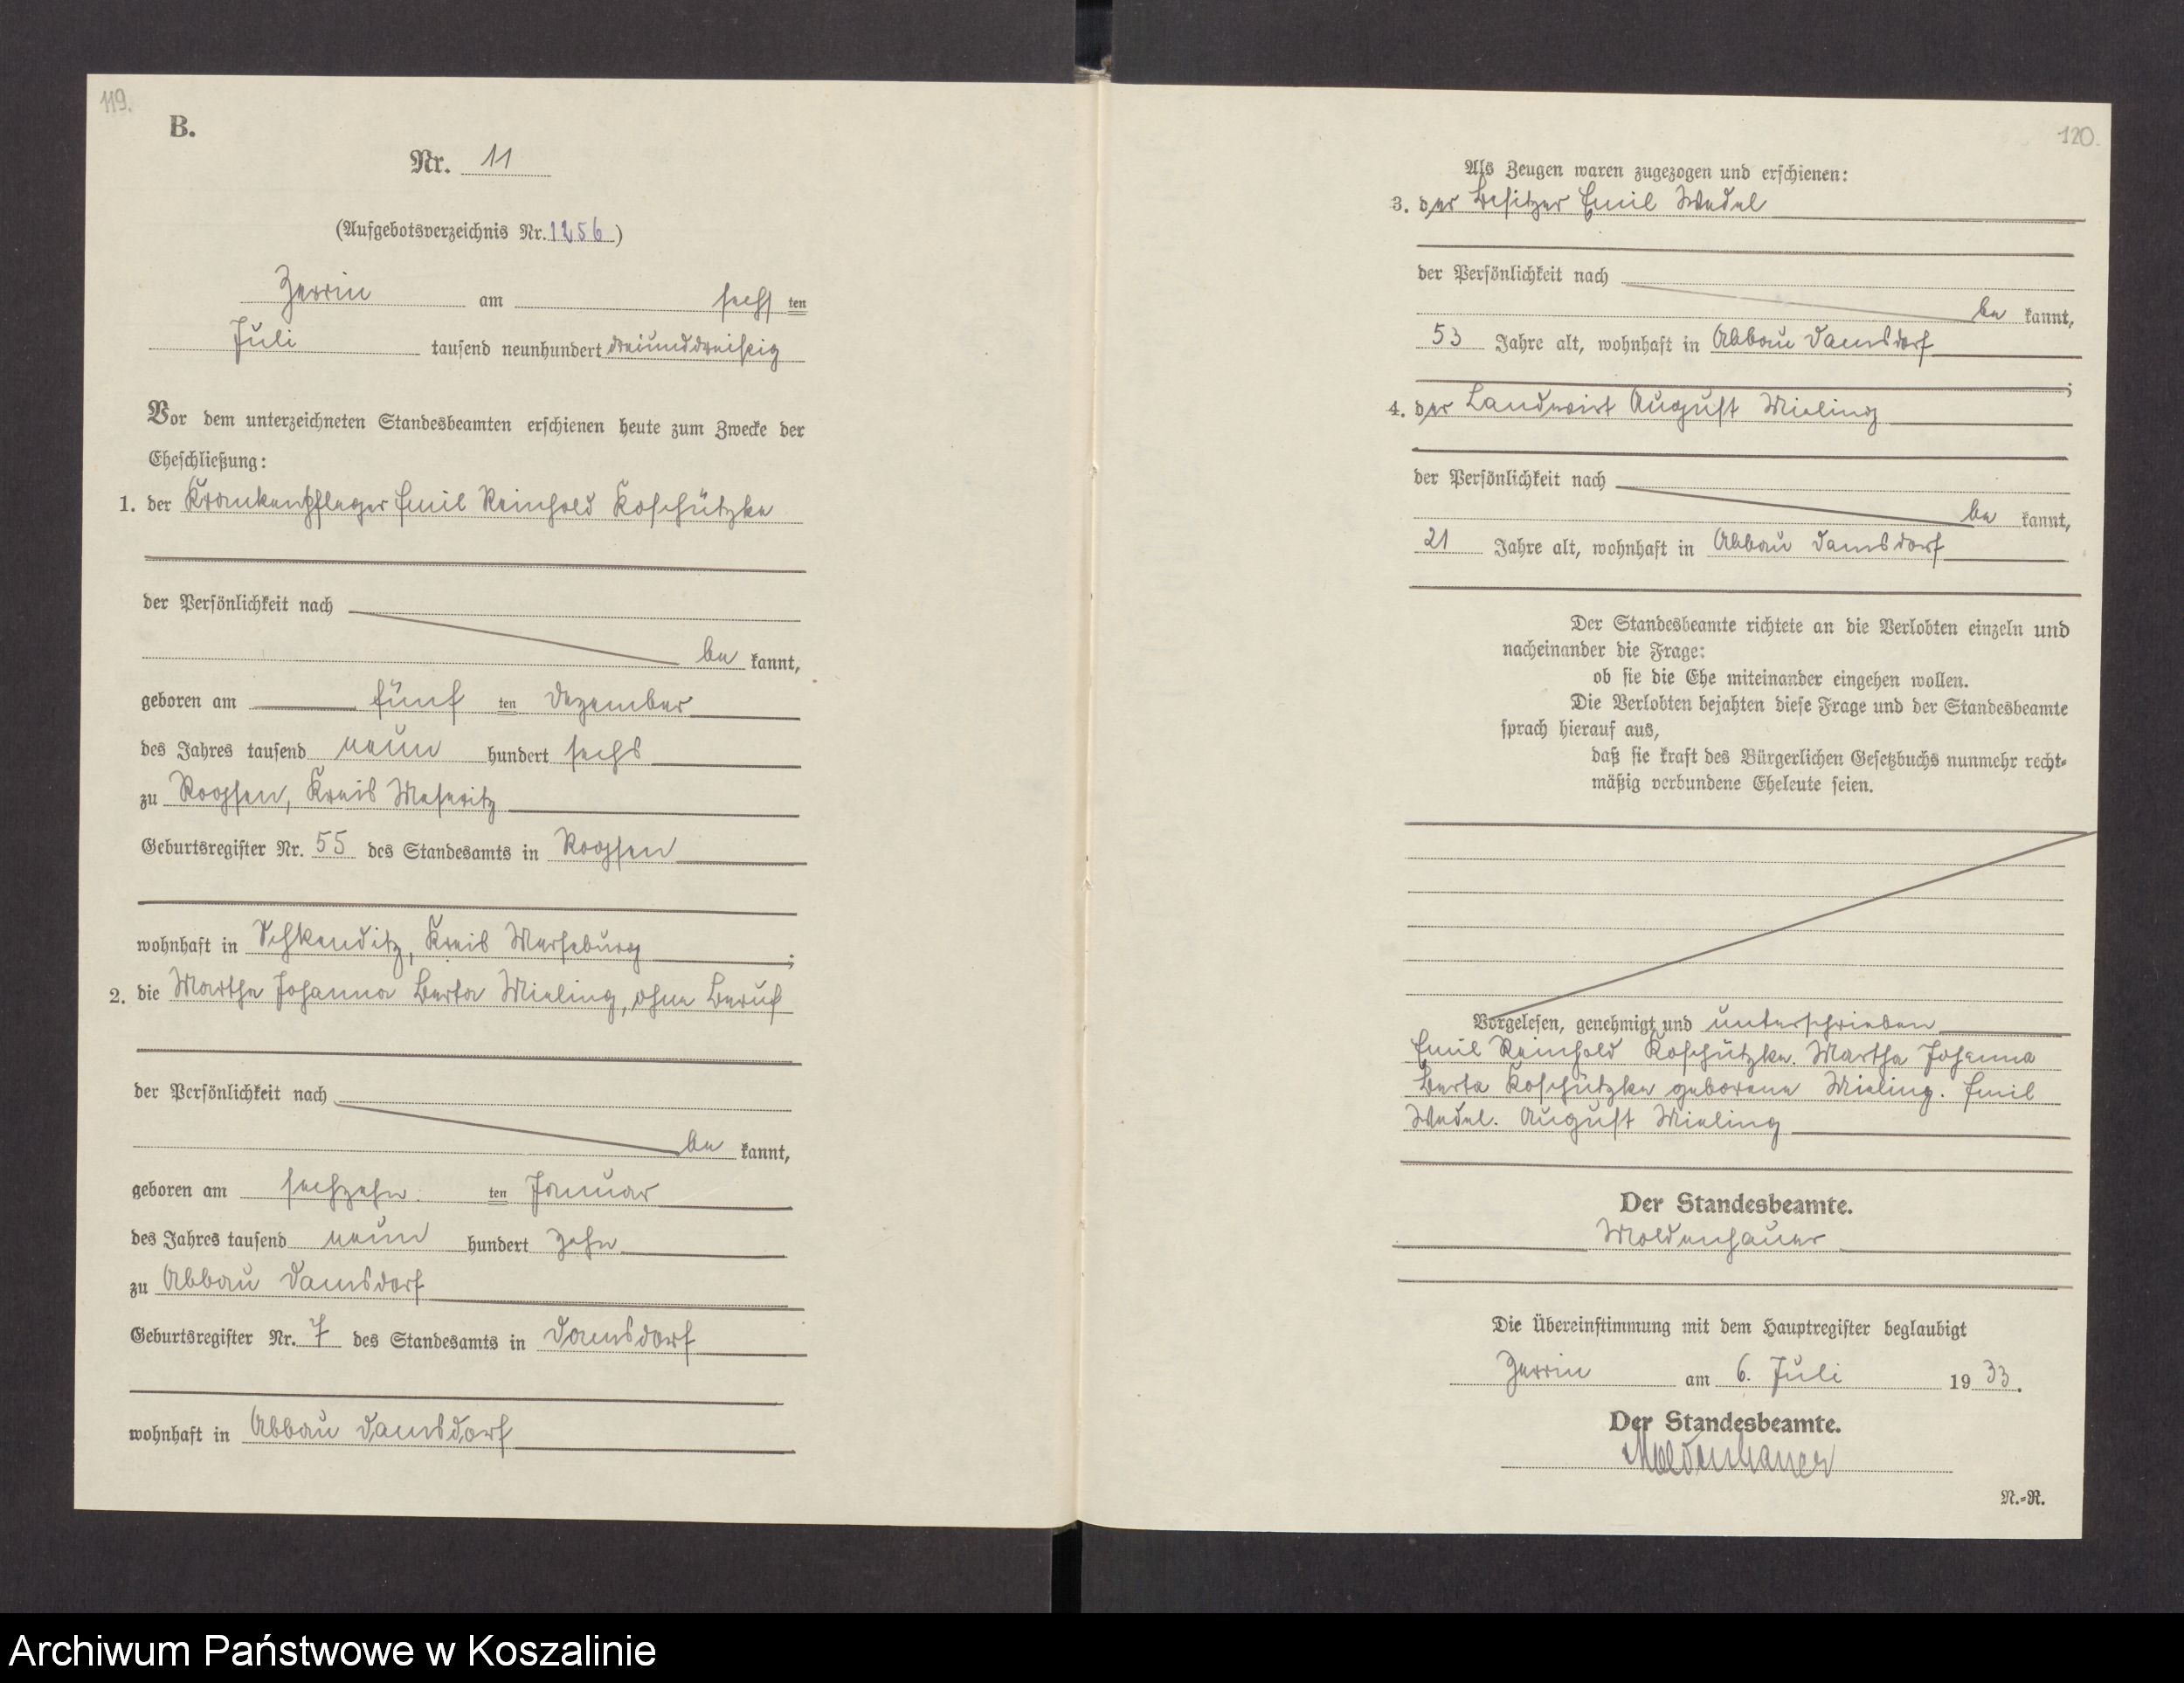 119.
B.
Nr. 11
(Aufgebotsverzeichnis Nr. 1256)
Zerrin am sechs ten
Juli tausend neunhundert dreiunddreißig
Vor dem unterzeichneten Standesbeamten erschienen heute zum Zwecke der
Eheschließung:
1. der Krankenpfleger Emil Reinhold Koschützke
der Persönlichkeit nach
be kannt,
geboren am fünf ten Dezember
des Jahres tausend neun hundert sechs
zu Rogsen, Kreis Meseritz
Geburtsregister Nr. 55 des Standesamts in Rogsen
wohnhaft in Schkeuditz, Kreis Merseburg ;
2. die Martha Johanna Berta Mieling, ohne Beruf
der Persönlichkeit nach
be kannt,
geboren am sechzehn ten Januar
des Jahres tausend neun hundert zehn
zu Abbau Damsdorf
Geburtsregister Nr. 7 des Standesamts in Damsdorf
wohnhaft in Abbau Damsdorf
120.
Als Zeugen waren zugezogen und erschienen:
3. der Besitzer Emil Wedel
der Persönlichkeit nach
be kannt,
53 Jahre alt, wohnhaft in Abbau Damsdorf
;
4. der Landwirt August Mieling
der Persönlichkeit nach
be kannt,
21 Jahre alt, wohnhaft in Abbau Damsdorf
Der Standesbeamte richtete an die Verlobten einzeln und
nacheinander die Frage:
ob sie die Ehe miteinander eingehen wollen.
Die Verlobten bejahten diese Frage und der Standesbeamte
sprach hierauf aus,
daß sie kraft des Bürgerlichen Gesetzbuchs nunmehr recht-
mäßig verbundene Eheleute seien.
Vorgelesen, genehmigt und unterschrieben
Emil Reinhold Koschützke. Martha Johanna
Berta Koschützke geborene Mieling. Emil
Wedel. August Mieling
Der Standesbeamte.
Moldenhauer
Die Übereinstimmung mit dem Hauptregister beglaubigt
Zerrin am 6. Juli 19 33.
Der Standesbeamte.
Moldenhauer
N.-R.
Archiwum Państwowe w Koszalinie